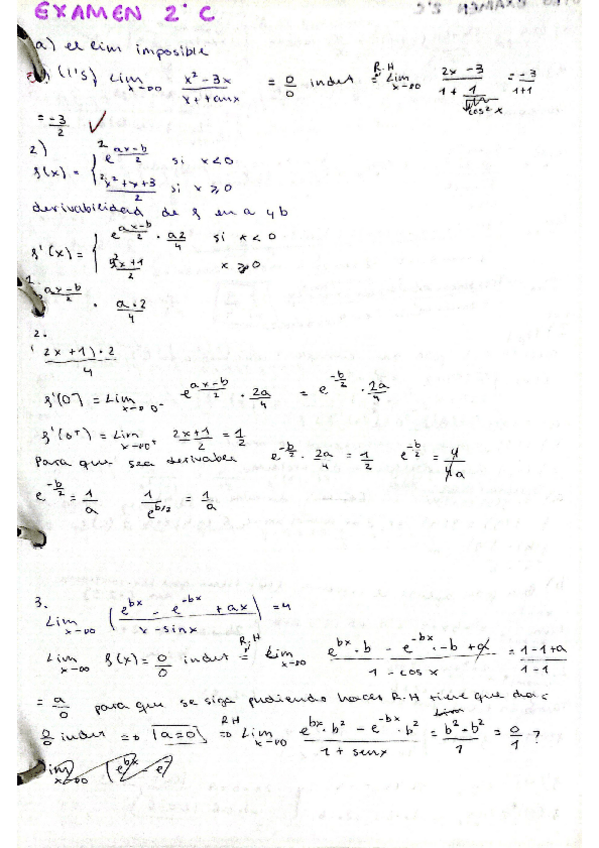 EXAMEN 2º C
a) el lim imposible
(1'5) lim x→0 x² - 3x / x + tanx = 0/0 indet R.H = lim x→0 2x - 3 / 1 + 1/cos²x = -3 / 1+1
= -3/2 ✓
2)
f(x) = { e^(ax-b)/2 si x < 0
x² + x + 3 / 2 si x ⩾ 0
derivabilidad de f en a y b
f'(x) = { e^(ax-b)/2 · a2/4 si x < 0
2x+1 / 2 x ⩾ 0
1. ax-b / 2 · a·2 / 4
2.
(2x + 1)·2 / 4
f'(0⁻) = lim x→0⁻ e^(ax-b)/2 · 2a/4 = e^-b/2 · 2a/4
f'(0⁺) = lim x→0⁺ 2x+1 / 2 = 1/2
Para que sea derivable e^-b/2 · 2a/4 = 1/2 e^-b/2 = 4/4a
e^-b/2 = 1/a 1/e^b/2 = 1/a
3.
lim x→0 (e^bx - e^-bx + ax / x - sinx) = 4
lim x→0 f(x) = 0/0 indet R.H = lim x→0 e^bx · b - e^-bx · -b + a / 1 - cosx = 1-1+a / 1-1
= a/0 para que se siga pudiendo hacer R.H tiene que dar
0/0 indet ⇒ |a=0| RH ⇒ lim x→0 e^bx · b² - e^-bx · b² / 1 + senx = b² · b² / 1 = 0/1 ?
lim x→0 (e^bx - e